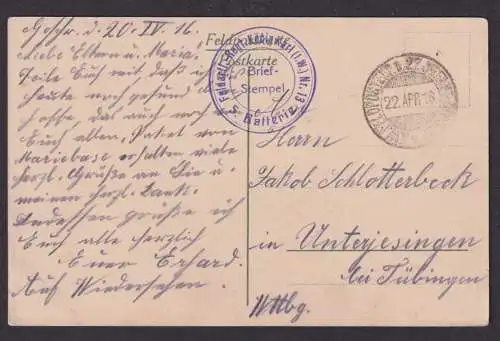 Geschr. d. 20. IV. 16.
Liebe Eltern u. Maria!
Teile Euch mit daß ich
heute noch gesund
hoffe, das auch noch v.
Euch allen, Paket von
Mariebase erhalten viele
herzl. Grüße an Sie u.
meinen herzl. Dank.
Indessen grüße ich
Euch alle herzlich
Euer Erhard.
Auf Wiedersehen.
Feldpost
Postkarte
Feldart.-Regt. König Karl (1. W.) Nr. 13
Brief-
Stempel
5. Batterie
22 APR 16
Herrn
Jakob Schlotterbeck
in Unterjesingen
bei Tübingen
Wttbg.